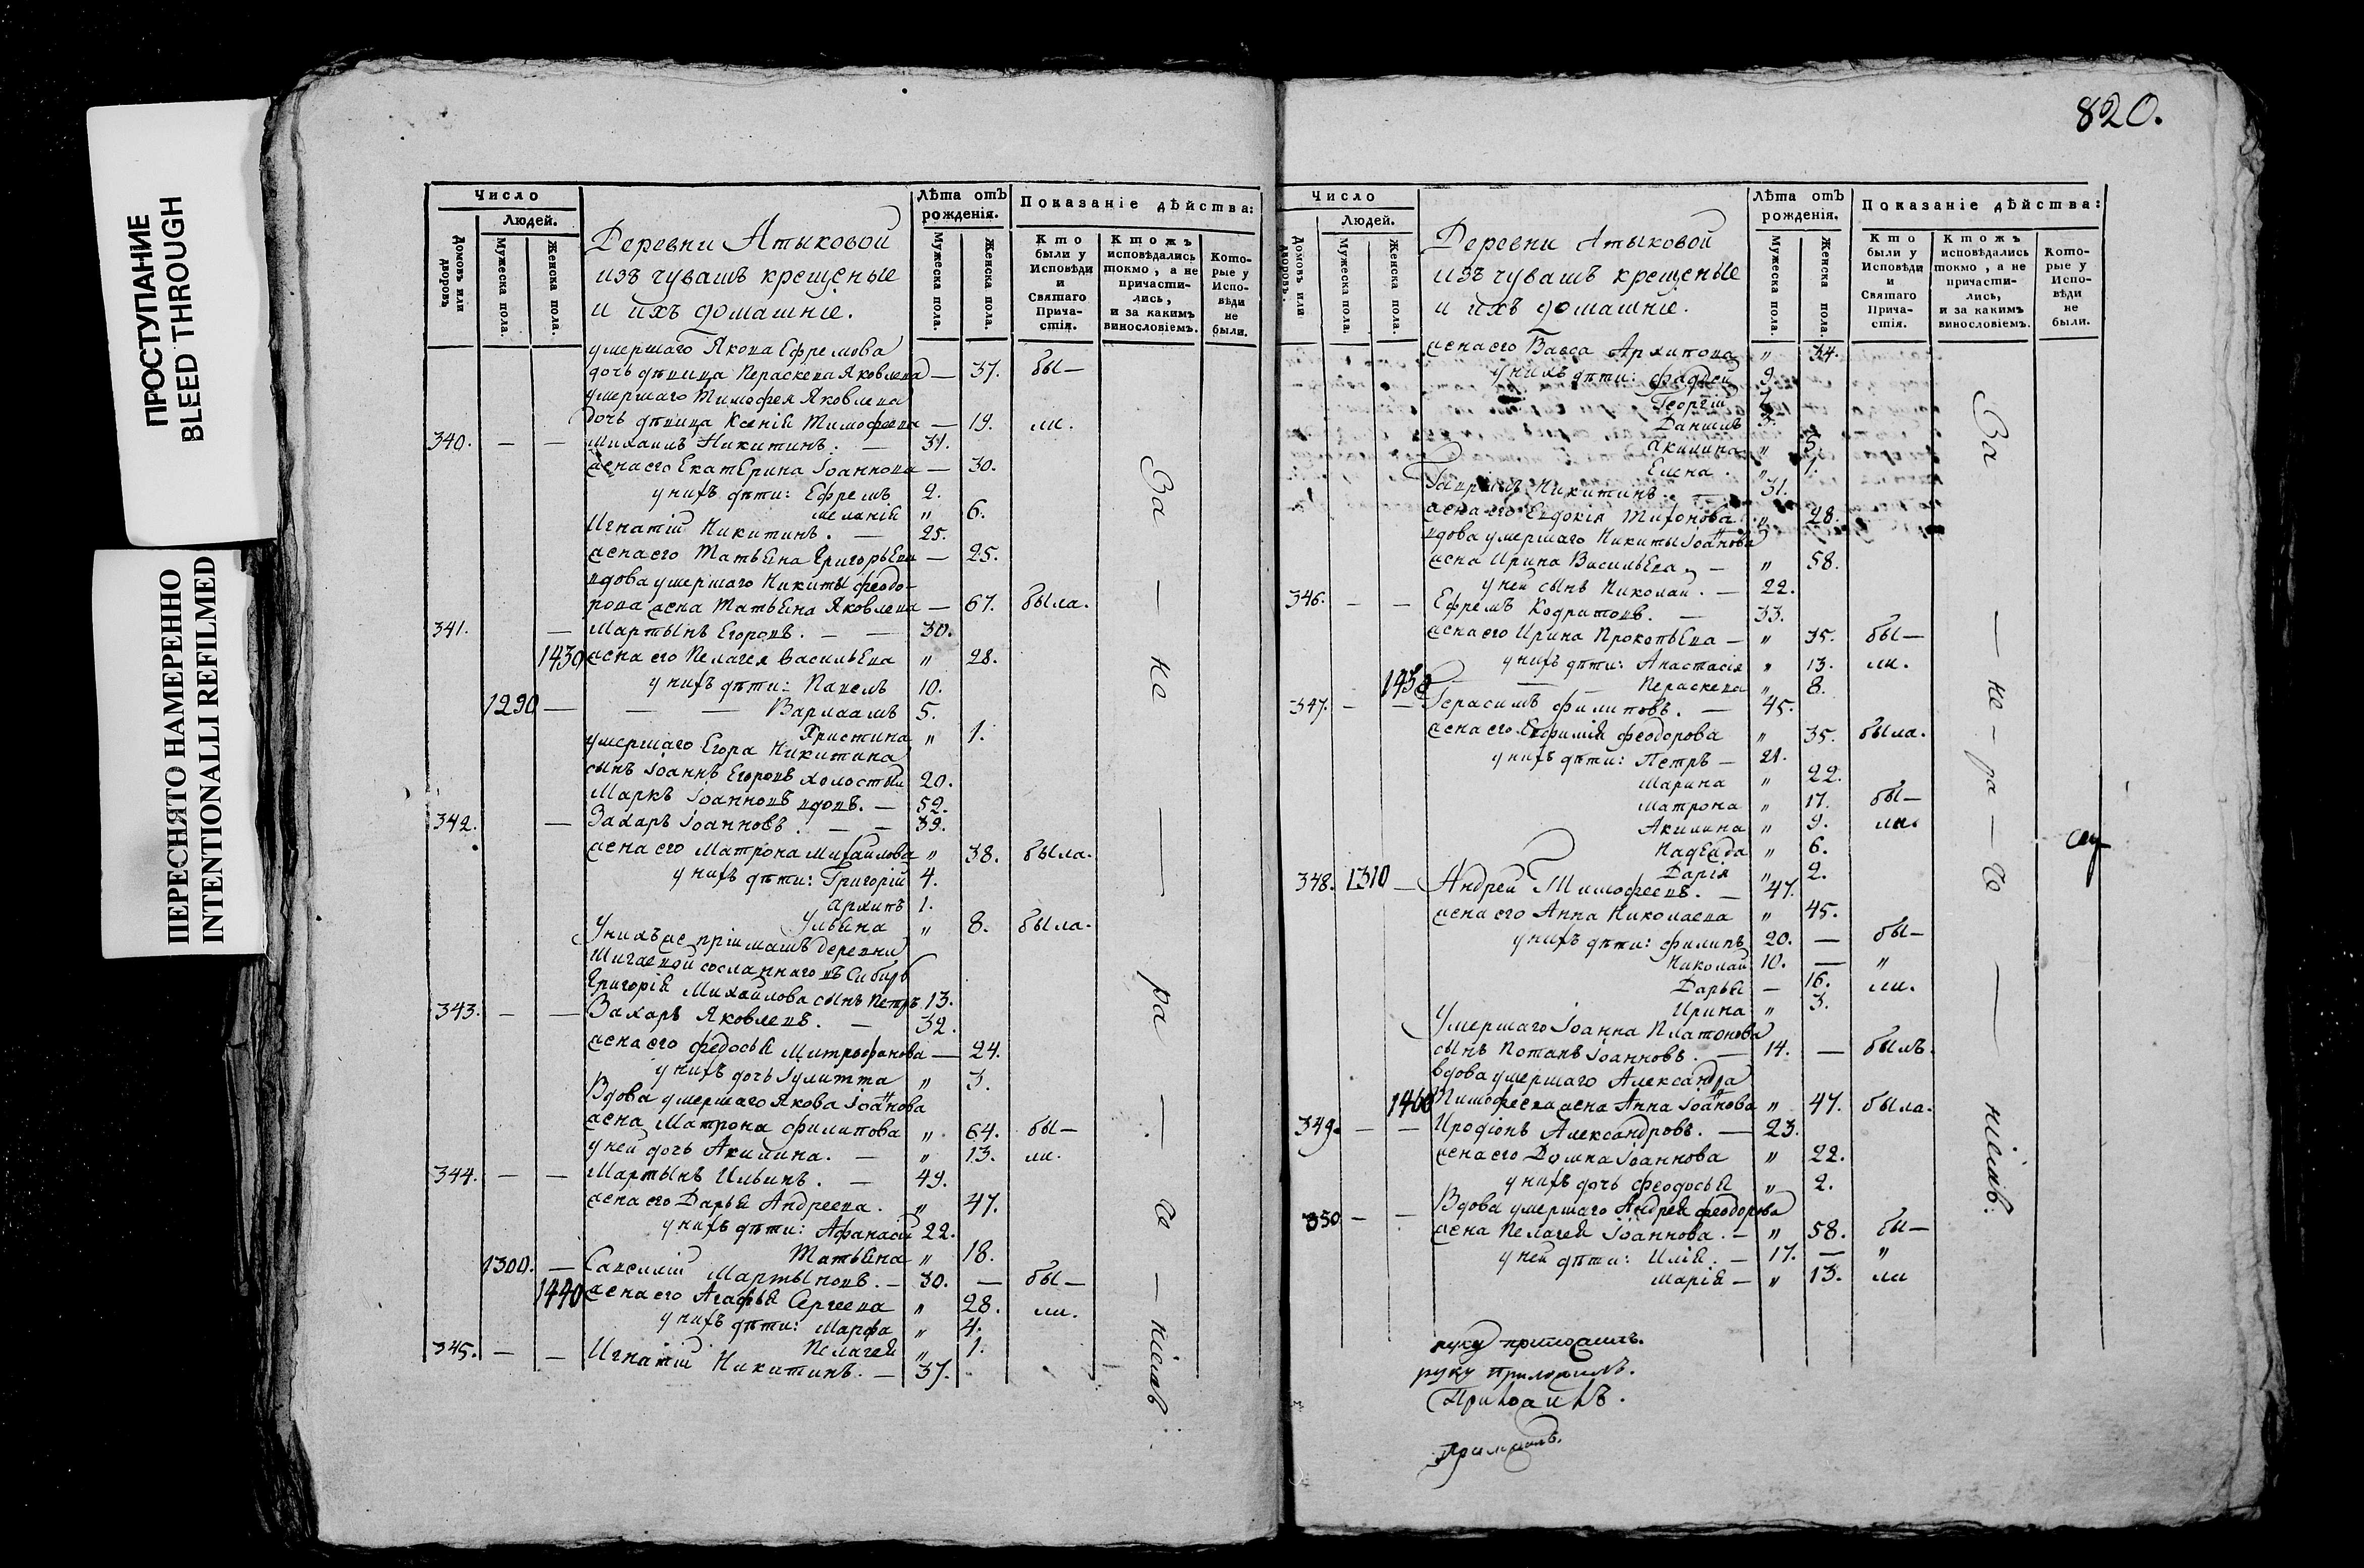 ПРОСТУПАНИЕ
BLEED THROUGH
ПЕРЕСНЯТО НАМЕРЕННО
INTENTIONALLI REFILMED
Число
Людей.
Домовъ или дворовъ
Мужеска пола.
Женска пола.
Деревни Атыковой
изъ чувашъ крещеные
и ихъ домашніе.
Лѣта отъ рожденія.
Мужеска пола.
Женска пола.
Показаніе дѣйства:
Кто были у Исповѣди и Святаго Причастія.
Ктожъ исповѣдались токмо, а не причастились, и за какимъ винословіемъ.
Которые у Исповѣди не были.
умершаго Якова Ефремова
дочь дѣвица Параскева Яковлева — 37. бы—
умершаго Тимофея Яковлева
дочь дѣвица Ксенія Тимофеева — 19. ли.
340. — — Михаилъ Никитинъ. — 31.
жена его Екатерина Іоаннова — 30.
у нихъ дѣти: Ефремъ 2.
Меланія " 6.
Игнатій Никитинъ. — 25.
жена его Татьяна Григорьева — 25.
вдова умершаго Никиты Феодо-
рова жена Татьяна Яковлева — 67. была.
341. — Мартынъ Егоровъ. — — 30.
1430 жена его Пелагея Васильева " 28.
у нихъ дѣти: Павелъ 10.
1290 — — — Варлаамъ 5.
Христина " 1.
умершаго Егора Никитина
сынъ Іоаннъ Егоровъ холостый 20.
Маркъ Іоанновъ вдовъ. — 52.
342. — Захаръ Іоанновъ. — — 39.
жена его Матрона Михайлова " 38. была.
у нихъ дѣти: Григорій 4.
Архипъ 1.
Ульяна " 8. была.
У нихъ же пріимашъ деревни
Шигаевой сосланнаго въ Сибирь
Григорія Михайлова сынъ Петръ 13.
343. — — Захаръ Яковлевъ. — 32.
жена его Федосья Митрофанова — 24.
у нихъ дочь Іулитта " 3.
Вдова умершаго Якова Іоаннова
жена Матрона Филипова " 64. бы—
у ней дочь Акилина. — " 13. ли.
344. — — Мартынъ Ильинъ. — 49.
жена его Дарья Андреева. " 47.
у нихъ дѣти: Афанасій 22.
Татьяна " 18.
1300. — Савелій Мартыновъ. — 30. — бы—
1440 жена его Агафья Сергеева " 28. ли.
у нихъ дѣти: Марфа " 4.
Пелагея " 1.
345. — — Игнатій Никитинъ. — 37.
За — не — ра — че — ніемъ.
820.
Число
Людей.
Домовъ или дворовъ.
Мужеска пола.
Женска пола.
Деревни Атыковой
изъ чувашъ крещеные
и ихъ домашніе.
Лѣта отъ рожденія.
Мужеска пола.
Женска пола.
Показаніе дѣйства:
Кто были у Исповѣди и Святаго Причастія.
Ктожъ исповѣдались токмо, а не причастились, и за какимъ винословіемъ.
Которые у Исповѣди не были.
жена его Васса Архипова " 34.
у нихъ дѣти: Фадей 9.
Георгій 7.
Даниилъ 3.
Акилина " 5.
Елена. " 1.
Гавріилъ Никитинъ. — 31.
жена его Евдокія Тихонова " 28.
вдова умершаго Никиты Іоаннова
жена Ирина Васильева. — " 58.
у ней сынъ Николай. — 22.
346. — — Ефремъ Кодратовъ. — 33.
жена его Ирина Прокопьева — " 35. бы—
у нихъ дѣти: Анастасія " 13. ли.
Параскева " 8.
347. — — Герасимъ Филиповъ. — 45.
жена его Евфимія Феодорова " 35. была.
у нихъ дѣти: Петръ — 21.
Марина " 22.
Матрона " 17. бы—
Акилина " 9. ли.
Надежда " 6.
Дарія " 2.
348. 1310 — Андрей Тимофеевъ. — 47.
жена его Анна Николаева " 45.
у нихъ дѣти: Филипъ 20. — бы—
Николай 10. — "
Дарья — 16. ли.
Ирина " 3.
Умершаго Іоанна Платонова
сынъ Потапъ Іоанновъ. — 14. — былъ.
Вдова умершаго Александра
1460 Тимофеева жена Анна Іоаннова " 47. была.
349. — — Иродіонъ Александровъ. — 23.
жена его Домна Іоаннова " 22.
у нихъ дочь Феодосья " 2.
350 — — Вдова умершаго Андрея Феодорова
жена Пелагея Іоаннова. — " 58. бы—
у ней дѣти: Илія. — 17. — "
Марія — " 13. ли
За — не — ра — че — ніемъ.
руку приложилъ.
руку приложилъ.
Приложилъ.
приложилъ.